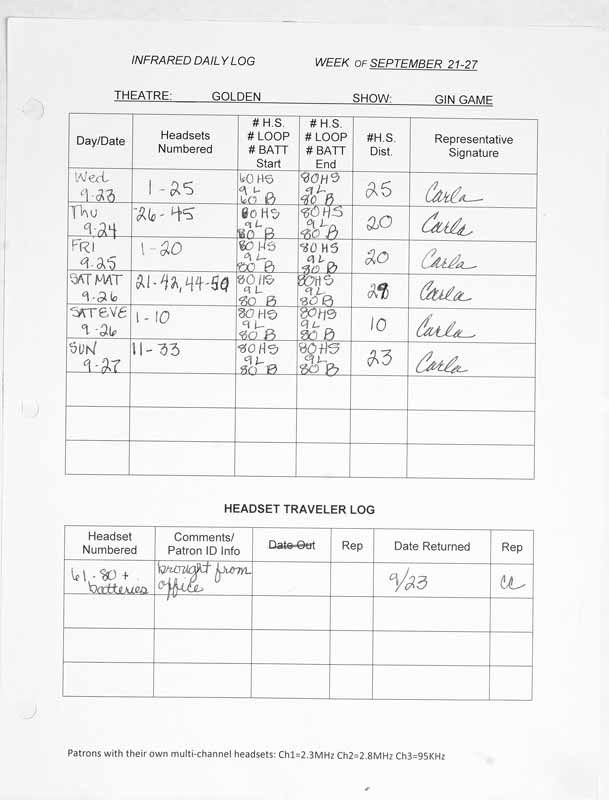 INFRARED DAILY LOG WEEK OF SEPTEMBER 21-27
THEATRE: GOLDEN SHOW: GIN GAME
Day/Date Headsets Numbered # H.S. # LOOP # BATT Start # H.S. # LOOP # BATT End #H.S. Dist. Representative Signature
Wed 9-23 1-25 60 HS 9L 60 B 80 HS 9L 80 B 25 Carla
Thu 9.24 26-45 80 HS 9L 80 B 80 HS 9L 80 B 20 Carla
FRI 9.25 1-20 80 HS 9L 80 B 80 HS 9L 80 B 20 Carla
SAT MAT 9.26 21-42, 44-50 80 HS 9L 80 B 80HS 9L 80 B Carla
SAT EVE 9-26 1-10 80 HS 9L 80 B 80HS 9L 80 B 10 Carla
SUN 9-27 11-33 80 HS 9L 80 B 80HS 9L 80 B 23 Carla
HEADSET TRAVELER LOG
Headset Numbered Comments/ Patron ID Info Date Out Rep Date Returned Rep
61-80 + batteries brought from office 9/23 ca
Patrons with their own multi-channel headsets: Ch1=2.3MHz Ch2=2.8MHz Ch3=95KHz